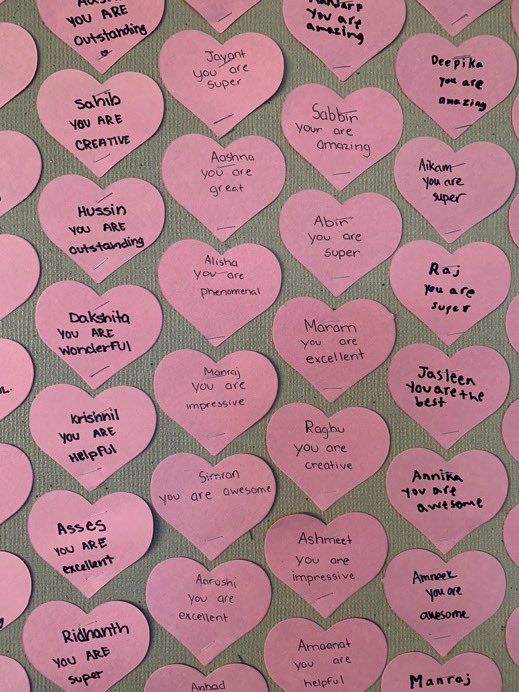 outstanding
Sahib
YOU ARE
CREATIVE
Hussin
YOU ARE
outstanding
Dakshita
YOU ARE
wonderful
Krishnil
YOU ARE
Helpful
Asses
YOU ARE
excellent
Ridhanth
YOU ARE
super
Jayant
you are
super
Aashna
you are
great
Alisha
you are
phenomenal
Manraj
you are
impressive
Simran
you are awesome
Aarushi
you are
excellent
Anhad
you are
amazing
Sabbir
your are
amazing
Abir
you are
super
Maram
you are
excellent
Raghu
you are
creative
Ashmeet
you are
impressive
Amaanat
you are
helpful
Deepika
you are
amazing
Aikam
you are
super
Raj
you are
super
Jasleen
you are the
best
Annika
you are
awesome
Amneek
you are
awesome
Manraj